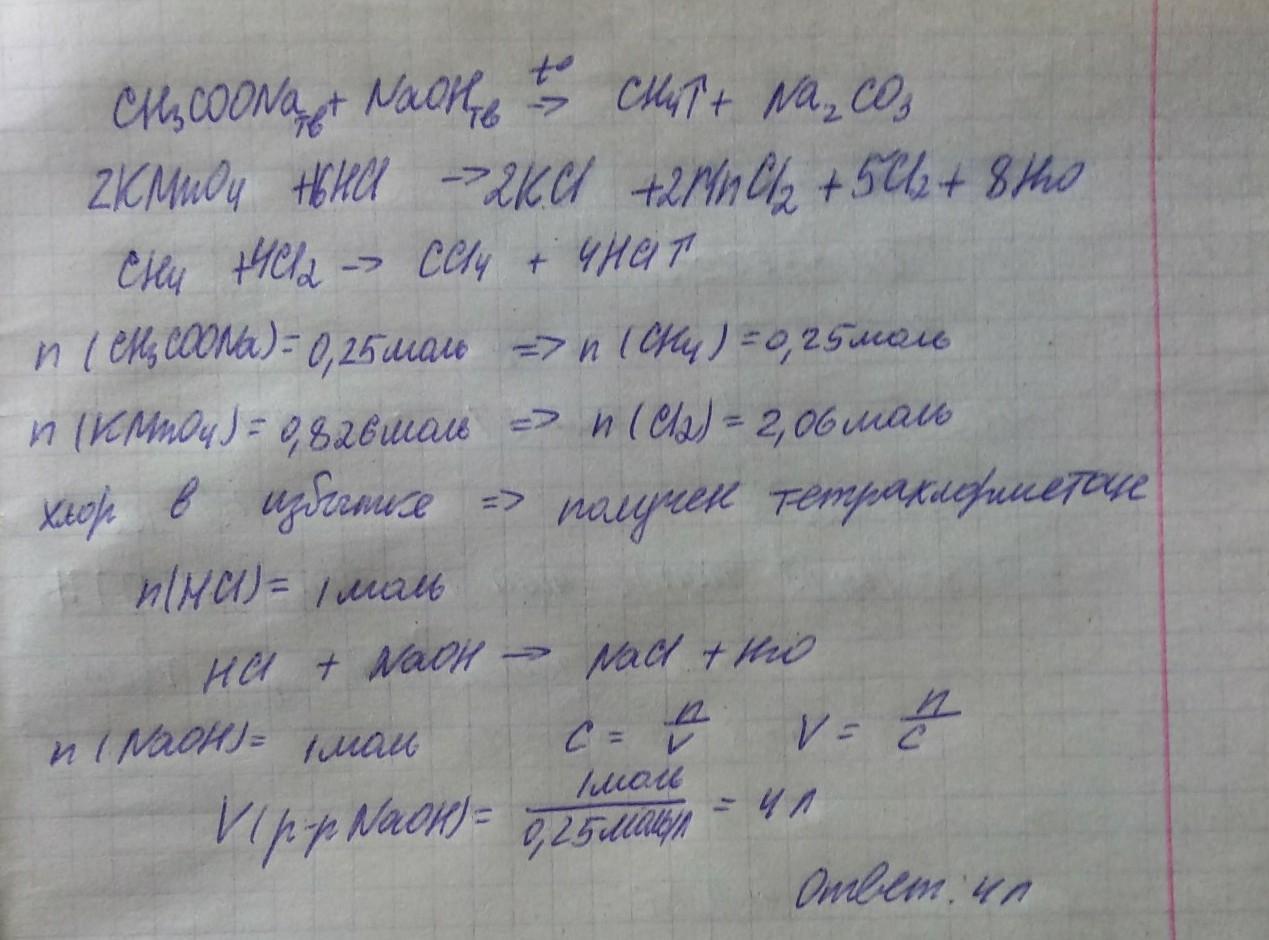 CH₃COONaтв + NaOHтв t°⇒ CH₄↑ + Na₂CO₃
2KMnO₄ + 16HCl → 2KCl + 2MnCl₂ + 5Cl₂ + 8H₂O
CH₄ + 4Cl₂ → CCl₄ + 4HCl↑
n (CH₃COONa) = 0,25моль => n (CH₄) = 0,25моль
n (KMnO₄) = 0,826моль => n (Cl₂) = 2,06моль
хлор в избытке => получен тетрахлорметан
n(HCl) = 1 моль
HCl + NaOH → NaCl + H₂O
n (NaOH) = 1моль C = n/V V = n/C
V(р-р NaOH) = 1моль/0,25моль/л = 4 л
Ответ: 4 л